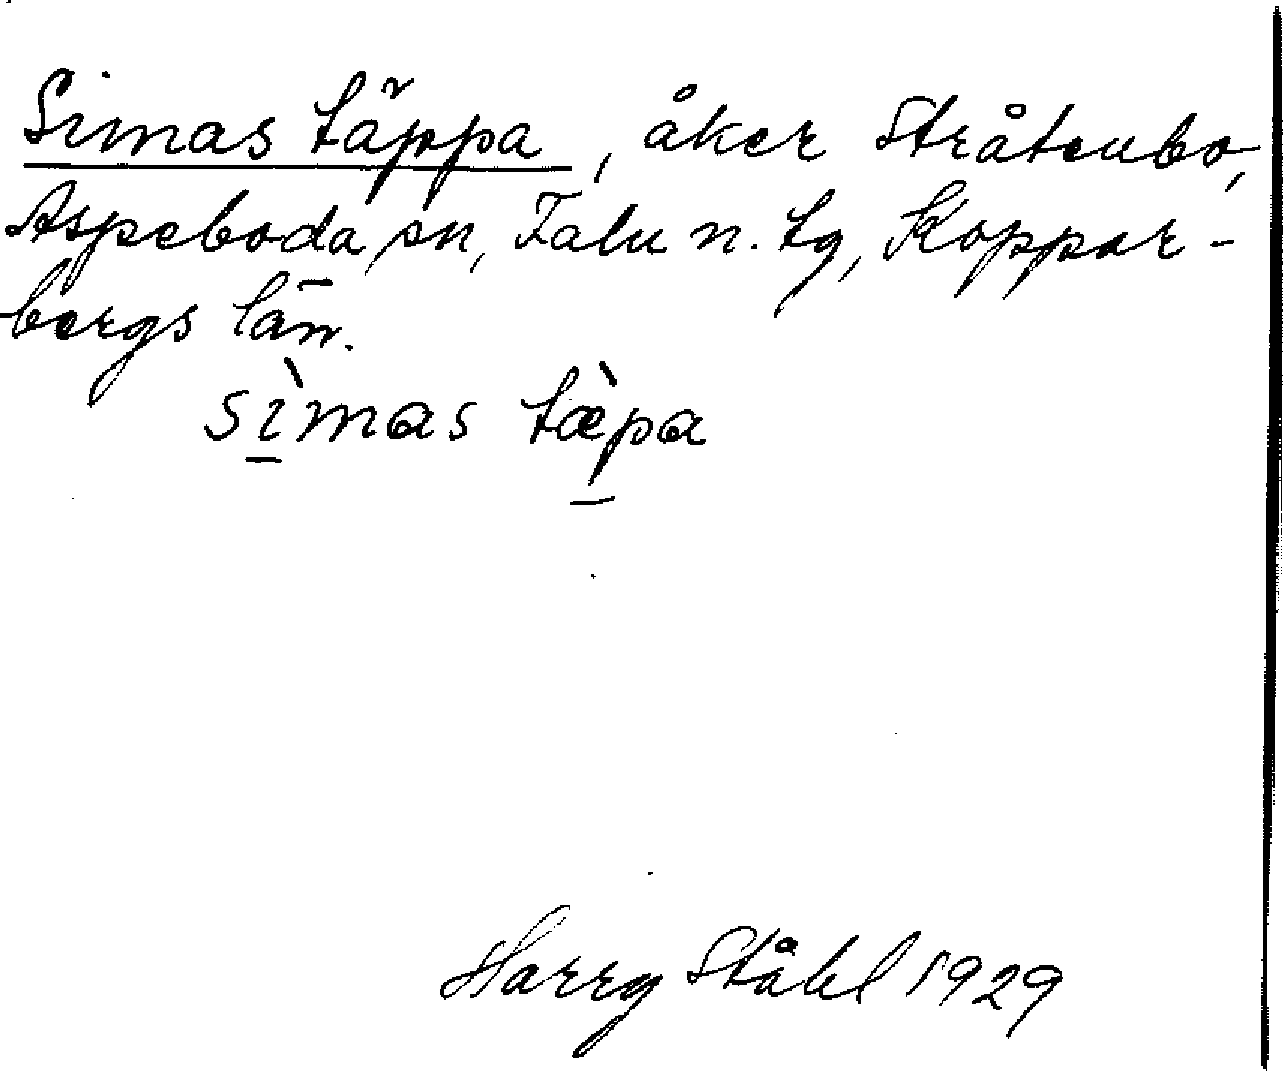 Simas täppa, åker Stråtenbo,
Aspeboda sn, Falu n. tg, Koppar-
bergs län.
sìmas tæ̀pa
Harry Ståhl 1929